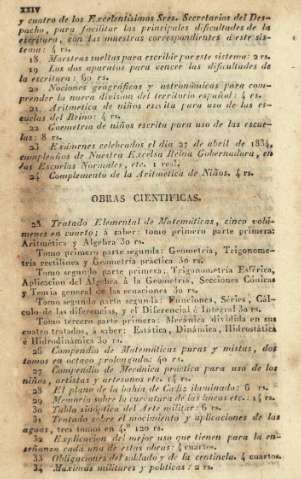 XXIV
y cuatro de los Excelentísimos Sres. Secretarios del Des-
pacho, para facilitar las principales dificultades de la
escritura, con las muestras correspondientes á este sis-
tema: 4 rs.
18 Muestras sueltas para escribir por este sistema: 2 rs.
19 Los dos aparatos para vencer las dificultades de
la escritura: 60 rs.
20 Nociones geográficas y astronómicas para com-
prender la nueva division del territorio español: 4 rs.
21 Aritmetica de niños escrita para uso de las es-
cuelas del Reino: 4 rs.
22 Geometria de niños escrita para uso de las escue-
las: 8 rs.
23 Exámenes celebrados el dia 27 de abril de 1834,
cumpleaños de Nuestra Excelsa Reina Gobernadora, en
las Escuelas Normales, etc. 1 real.
24 Complemento de la Aritmética de Niños. 4 rs.
OBRAS CIENTIFICAS.
25 Tratado Elemental de Matemáticas, cinco volú-
menes en cuarto; á saber: tomo primero parte primera:
Aritmética y Algebra 30 rs.
Tomo primero parte segunda: Geometría, Trigonome-
tría rectilínea y Geometría práctica 30 rs.
Tomo segundo parte primera: Trigonometría Esférica,
Aplicacion del Algebra á la Geometría, Secciones Cónicas
y Teoría general de las ecuaciones 30 rs.
Tomo segundo parte segunda: Funciones, Séries, Cál-
culo de las diferencias, y el Diferencial é Integral 30 rs.
Tomo tercero parte primera: Mecánica dividida en sus
cuatro tratados, á saber: Estática, Dinámica, Hidrostática
é Hidrodinámica 30 rs.
26 Compendio de Matemáticas puras y mistas, dos
tomos en octavo prolongado: 40 rs.
27 Compendio de Mecánica práctica para uso de los
niños, artistas y artesanos etc. 14 rs.
28 El plano de la bahía de Cadiz iluminado: 6 rs.
29 Memoria sobre la curvatura de las líneas etc.: 14 rs.
30 Tabla sinóptica del arte militar: 6 rs.
31 Tratado sobre el movimiento y aplicaciones de las
aguas, tres tomos en 4.º 120 rs.
32 Explicacion del mejor uso que tienen para la en-
señanza cada una de estas obras: 4 cuartos.
33 Obligaciones del soldado y de la centinela. 4 cuartos.
34 Máximas militares y políticas: 2 rs.